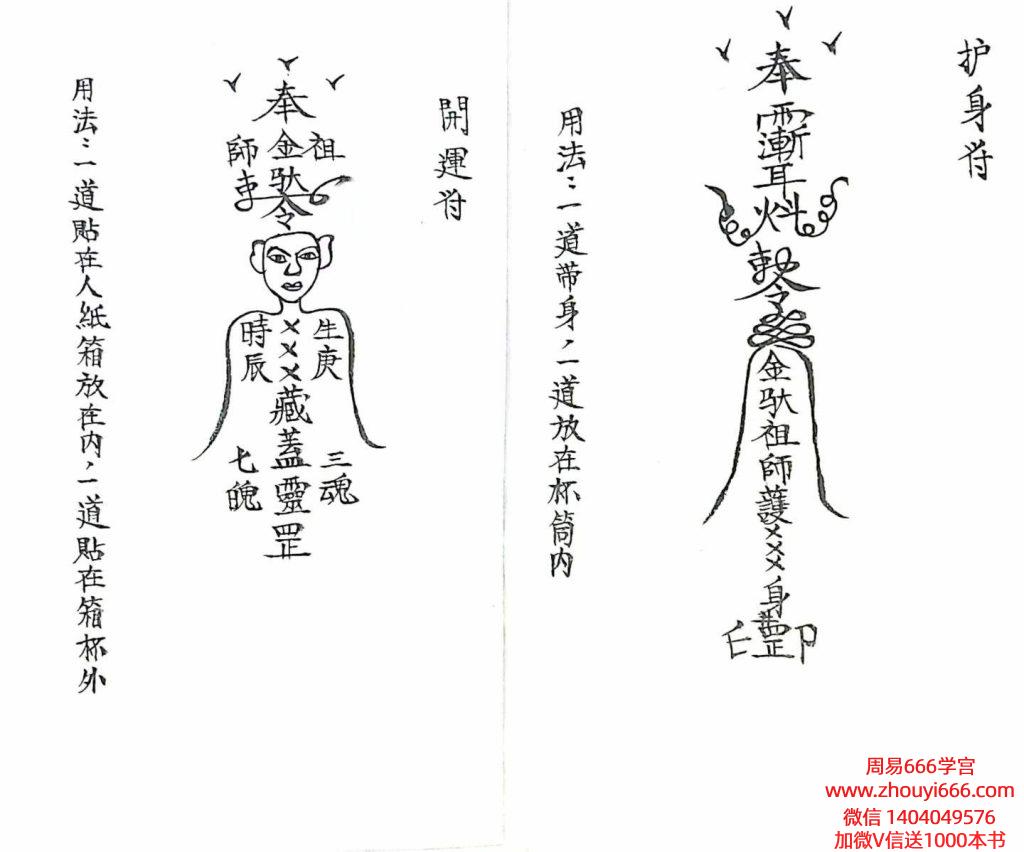 护身符
奉
耳
敕令
金馱祖師護×××身
罡
用法：一道带身，一道放在杯筒内
開運符
奉
祖
金馱
師
令
生庚
×××藏蓋靈罡
時辰
三魂
七魄
用法：一道貼在人紙箱放在内，一道貼在箱杯外
周易666学宫
www.zhouyi666.com
微信 1404049576
加微V信送1000本书